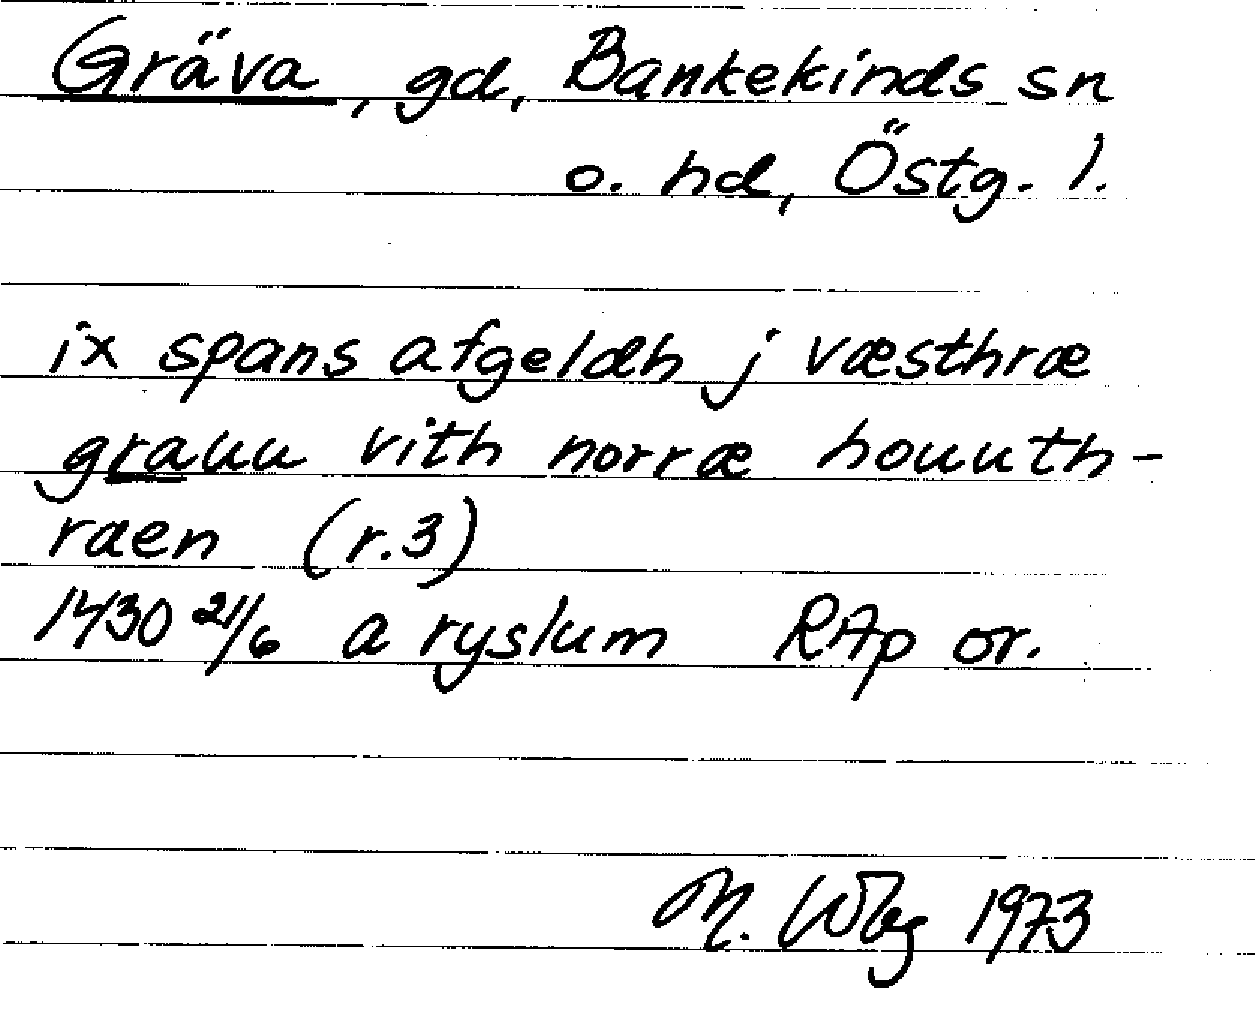 Gräva, gd, Bankekinds sn
o. hd, Östg. l.
ix spans afgeldh j væsthræ
grauu vith norræ houuth-
raen (r.3)
1430 21/6 a ryslum RAp or.
M. Wbg 1973